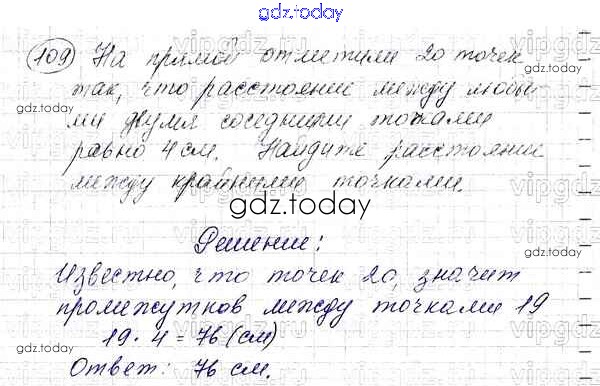 gdz.today
109 На прямой отметили 20 точек
так, что расстояние между любы
ми двумя соседними точками
равно 4 см. Найдите расстояние
между крайними точками.
gdz.today
Решение:
Известно, что точек 20, значит
промежутков между точками 19
19 · 4 = 76 (см)
Ответ: 76 см.